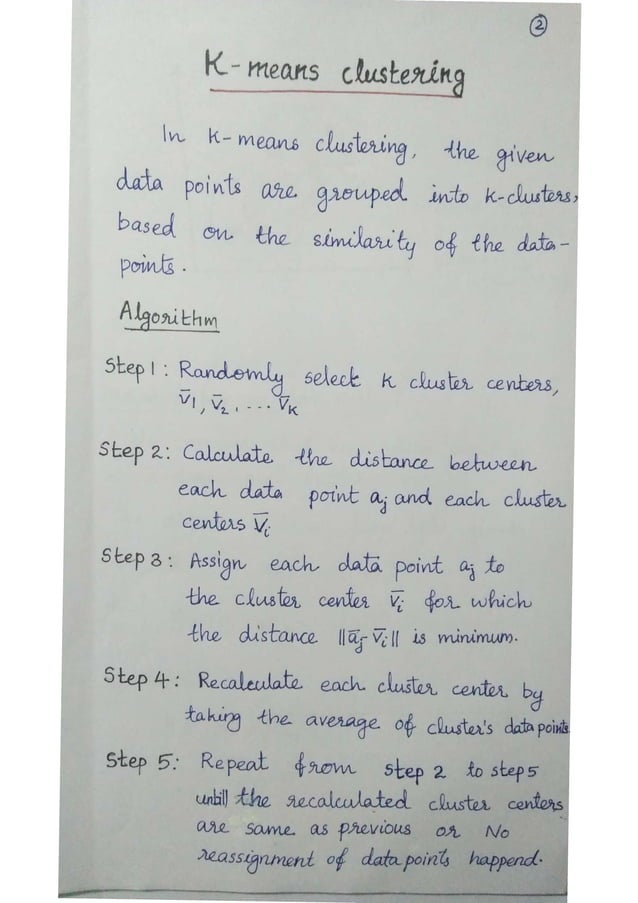 2
K-means clustering
In K-means clustering, the given
data points are grouped into K-clusters,
based on the similarity of the data-
points.
Algorithm
Step 1 : Randomly select K cluster centers,
v̄1, v̄2, .... v̄K
Step 2 : Calculate the distance between
each data point aj and each cluster
centers v̄i
Step 3 : Assign each data point aj to
the cluster center v̄i for which
the distance ||āj-v̄i|| is minimum.
Step 4 : Recalculate each cluster center by
taking the average of cluster's data points
Step 5 : Repeat from step 2 to step 5
untill the recalculated cluster centers
are same as previous or No
reassignment of data points happend.